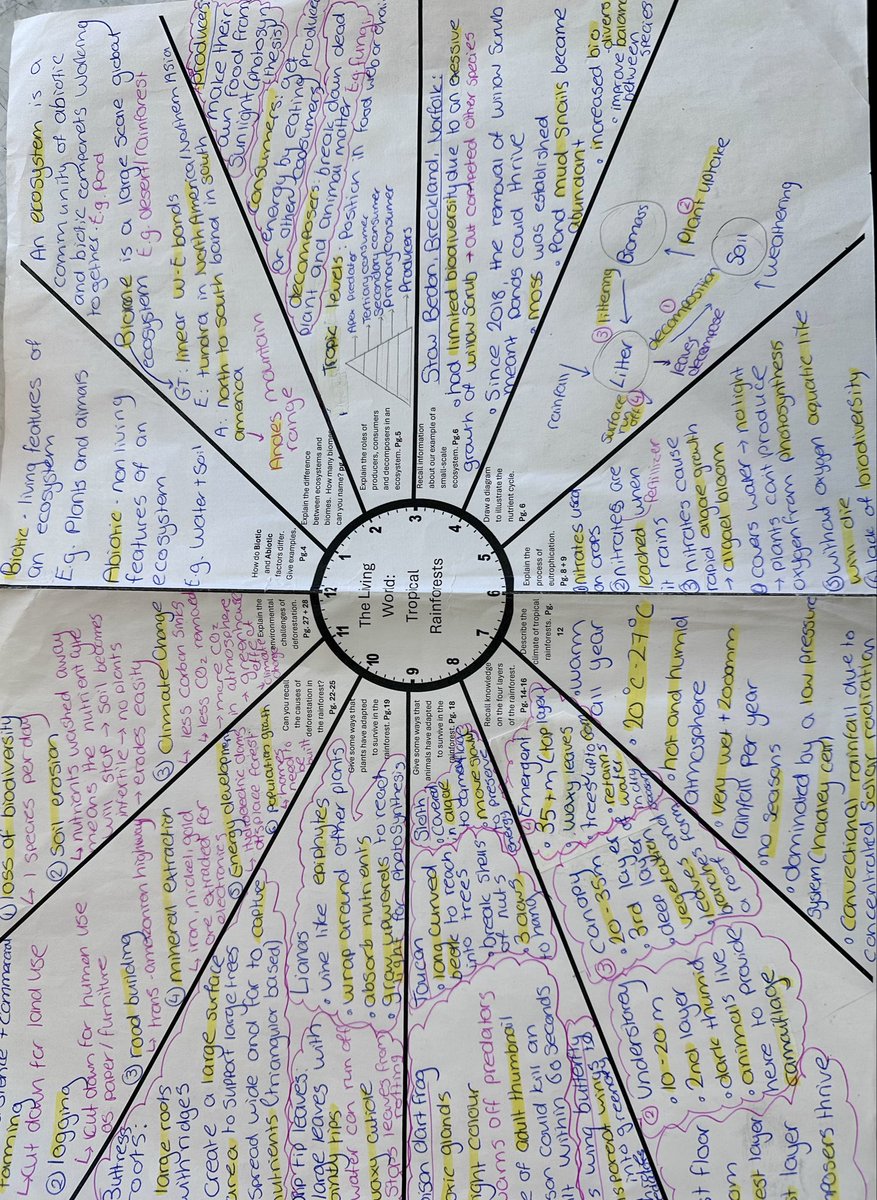 The Living
World:
Tropical
Rainforests
12
1
2
3
4
5
6
7
8
9
10
11
How do Biotic
and Abiotic
factors differ.
Give examples.
Pg.4
Biotic - living features of
an ecosystem
E.g. Plants and animals
Abiotic - non living
features of an
ecosystem
E.g. Water + Soil
Explain the difference
between ecosystems and
biomes. How many biomes
can you name?
An ecosystem is a
community of abiotic
and biotic components working
together. E.g. pond
Biome is a large scale global
ecosystem E.g. desert/rainforest
GT: linear w-e bands
E: tundra in North America/Northern Asia
A: north to south band in south
america
Andes mountain
range
Explain the roles of
producers, consumers
and decomposers in an
ecosystem. Pg.5
producers:
make their
own food from
sunlight (photosy
nthesis)
consumers: get
energy by eating producers
or other consumers
decomposers: break down dead
plant and animal matter E.g fungi
Tropic levels: Position in food web or chain
Apex predator
Tertiary consumer
secondary consumer
primary consumer
Producers
Recall information
about our example of a
small-scale
ecosystem. Pg.6
Staw Bedon, Breckland, Norfolk:
had limited biodiversity due to an exessive
growth of willow scrub → out competed other species
Since 2018, the removal of willow scrub
meant pands could thrive
moss was established
Pond mud snails became
abundant
increased bio
divers
improve balanc
between
species
Draw a diagram
to illustrate the
nutrient cycle.
Pg. 6
rainfall
Litter
surface
run off ④
③ littering
Biomass
② Plant uptake
① decomposition
leaves
decompose
Soil
weathering
Explain the
process of
eutrophication.
Pg. 8 + 9
① nitrates used
on crops
② nitrates are
leached when
it rains
fertilizer
③ nitrates cause
rapid algae growth
→ algel bloom
④ covers water → no light
→ plants can't produce
oxygen from photosynthesis
⑤ without oxygen aquatic life
will die
lack of biodiversity
Describe the
climate of tropical
rainforests. Pg.
12
warm
all year
20°c-27°c
hot and humid
atmosphere
very wet + 2000mm
rainfall per year
no seasons
dominated by a low pressure
system (hadley cell)
Convectional rainfall due to
concentrated solar radiation
Recall knowledge
on the four layers
of the rainforest.
Pg.14-16
④ Emergent
35+m (top layer)
waxy leaves
retains
water
in dry
season
③ canopy
20-35m
3rd layer
deep layer of
vegetation
leaves and
branches form
a roof
② understorey
10-20m
2nd layer
dark + humid
animals live
here to provide
camouflage
t floor
est layer
layer
posers thrive
Give some ways that
animals have adapted
to survive in the
rainforest. Pg.18
Sloth
covered
in algae
to camouflage
move slowly
to preserve
energy
3 claws
to hang
Toucan
long curved
beak to reach
into trees
break shells
of nuts
ison dart frog
xic glands
ight colour
warns off predators
e of adult thumbnail
son could kill an
lt within 60 seconds
s wing butterfly
sparent wings to
into greenery
Give some ways that
plants have adapted
to survive in the
rainforest. Pg.19
Lianas
vine like epiphytes
wrap around other plants
absorb nutrients
grow upwards to reach
light for photosynthesis
Buttress
roots:
large roots
with ridges
Create a large surface
area to support large trees
spread wide and far to captive
nutrients (triangular based)
rip tip leaves:
large leaves with
pointy tips
water can run off
waxy cuticle
stops leaves from
rotting
Can you recall
the causes of
deforestation in
the rainforest?
Pg. 22-25
farming
↳ cut down for land use
② logging
↳ cut down for human use
as paper/furniture
③ road building
↳ trans-amazonian highway
④ mineral extraction
↳ iron, nickel, gold
are extracted for
electronics
⑤ Energy development
↳ hydroelectric dams
displace forest
⑥ Population growth
↳ homes
need to
be
built
Explain the
environmental
challenges of
deforestation.
Pg. 27 + 28
① loss of biodiversity
↳ 1 species per day
② soil erosion
↳ nutrients washed away
means the nutrient cycle
will stop → soil becomes
infertile → no plants
→ erodes easily
③ Climate Change
↳ less carbon sinks
↳ less CO₂ removed
→ more CO₂
in atmosphere